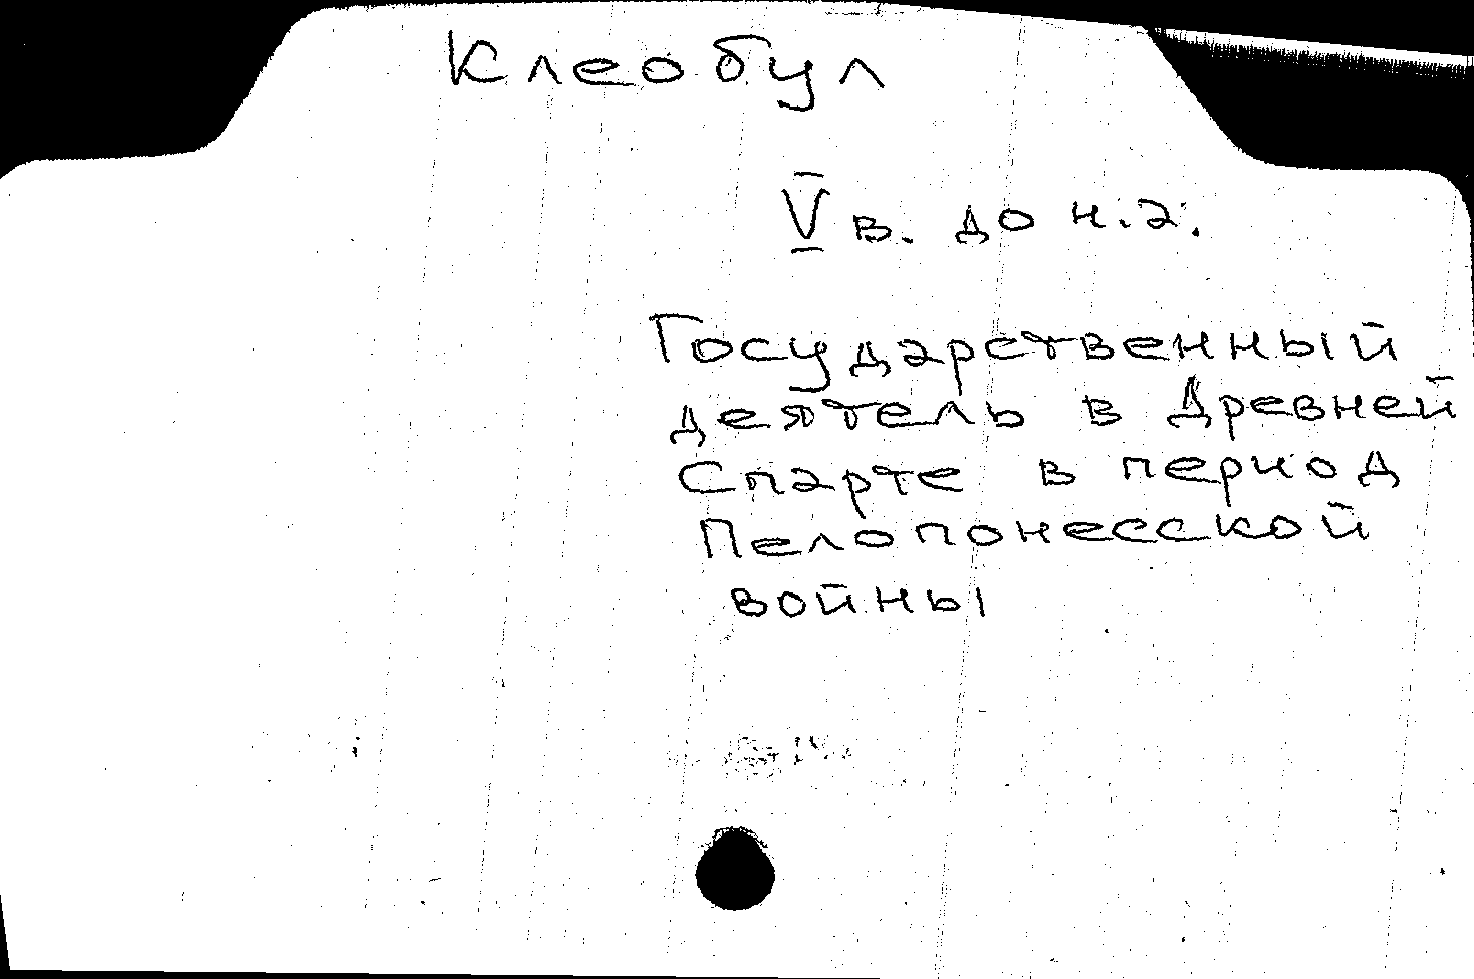 Клеобул
V в. до н.э.
Государственный
деятель в Древней
Спарте в период
Пелопонесской
войны